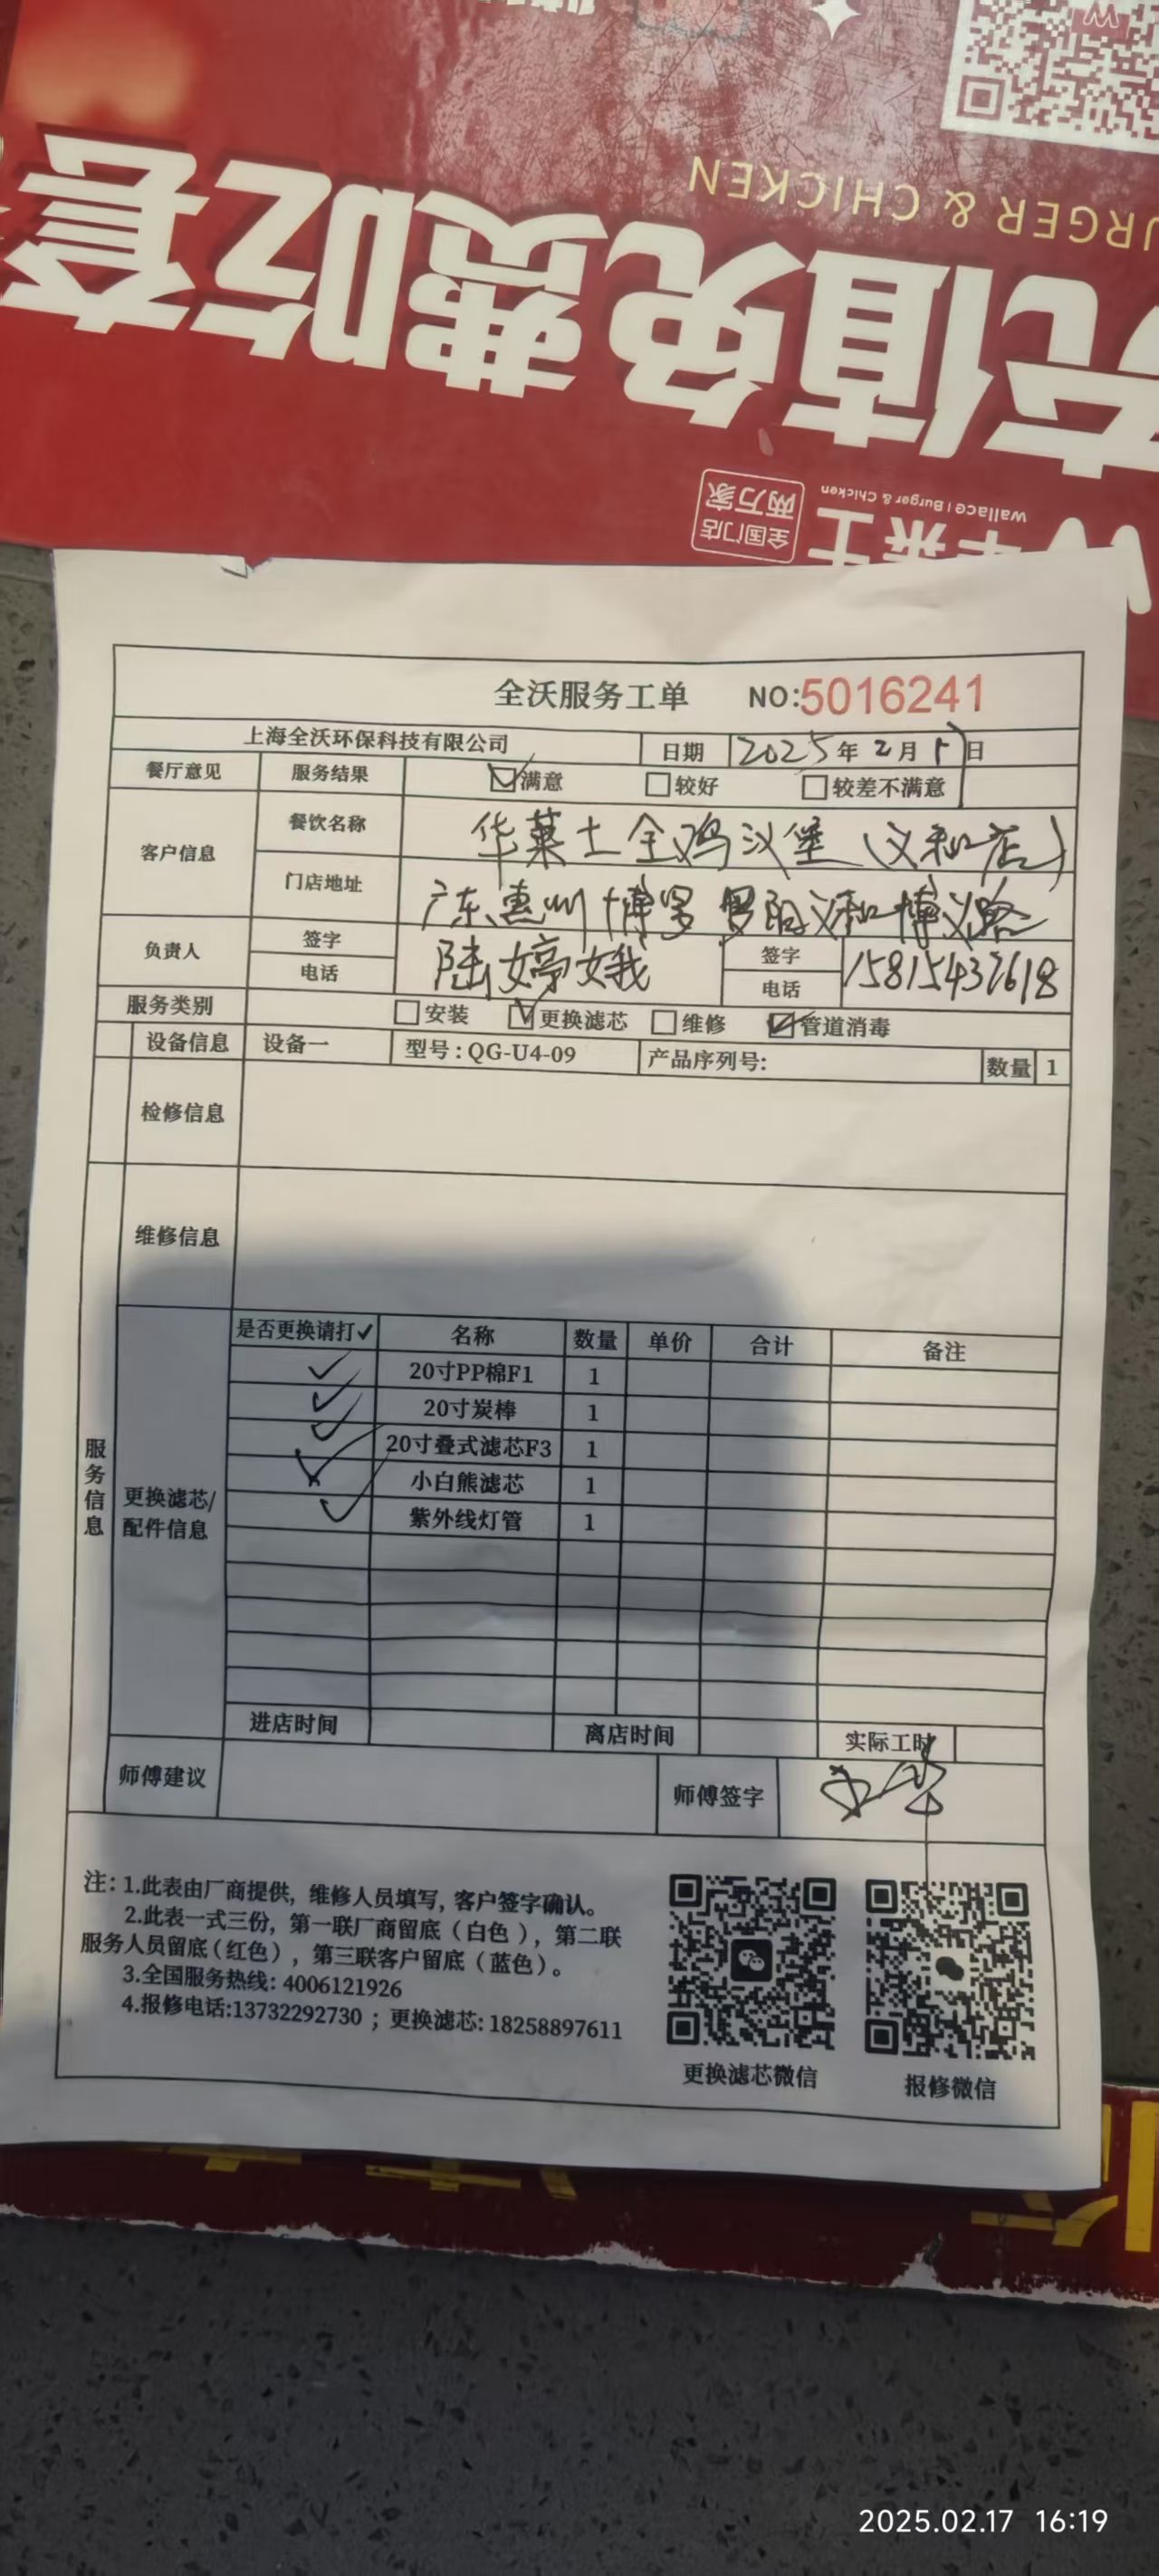 URGER & CHICKEN
充值免费吃套
华莱士
Wallace | Burger & Chicken
全国门店
两万家
全沃服务工单 NO:5016241
上海全沃环保科技有限公司 日期 2025年2月 日
餐厅意见 服务结果 满意 较好 较差不满意
客户信息 餐饮名称 华莱士全鸡汉堡(义和店)
门店地址 广东惠州博罗罗阳义和博义路
负责人 签字 陆婷娥 签字
电话 电话 15815437618
服务类别 安装 更换滤芯 维修 管道消毒
设备信息 设备一 型号:QG-U4-09 产品序列号: 数量 1
检修信息
维修信息
服务信息
更换滤芯/配件信息
是否更换请打✓ 名称 数量 单价 合计 备注
✓ 20寸PP棉F1 1
✓ 20寸炭棒 1
✓ 20寸叠式滤芯F3 1
✓ 小白熊滤芯 1
✓ 紫外线灯管 1
进店时间 离店时间 实际工时
师傅建议 师傅签字
注:1.此表由厂商提供,维修人员填写,客户签字确认。
2.此表一式三份,第一联厂商留底(白色),第二联
服务人员留底(红色),第三联客户留底(蓝色)。
3.全国服务热线:4006121926
4.报修电话:13732292730;更换滤芯:18258897611
更换滤芯微信 报修微信
2025.02.17 16:19